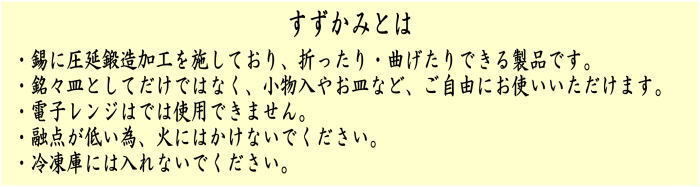 すずかみとは
・錫に圧延鍛造加工を施しており、折ったり・曲げたりできる製品です。
・銘々皿としてだけではなく、小物入やお皿など、ご自由にお使いいただけます。
・電子レンジはでは使用できません。
・融点が低い為、火にはかけないでください。
・冷凍庫には入れないでください。